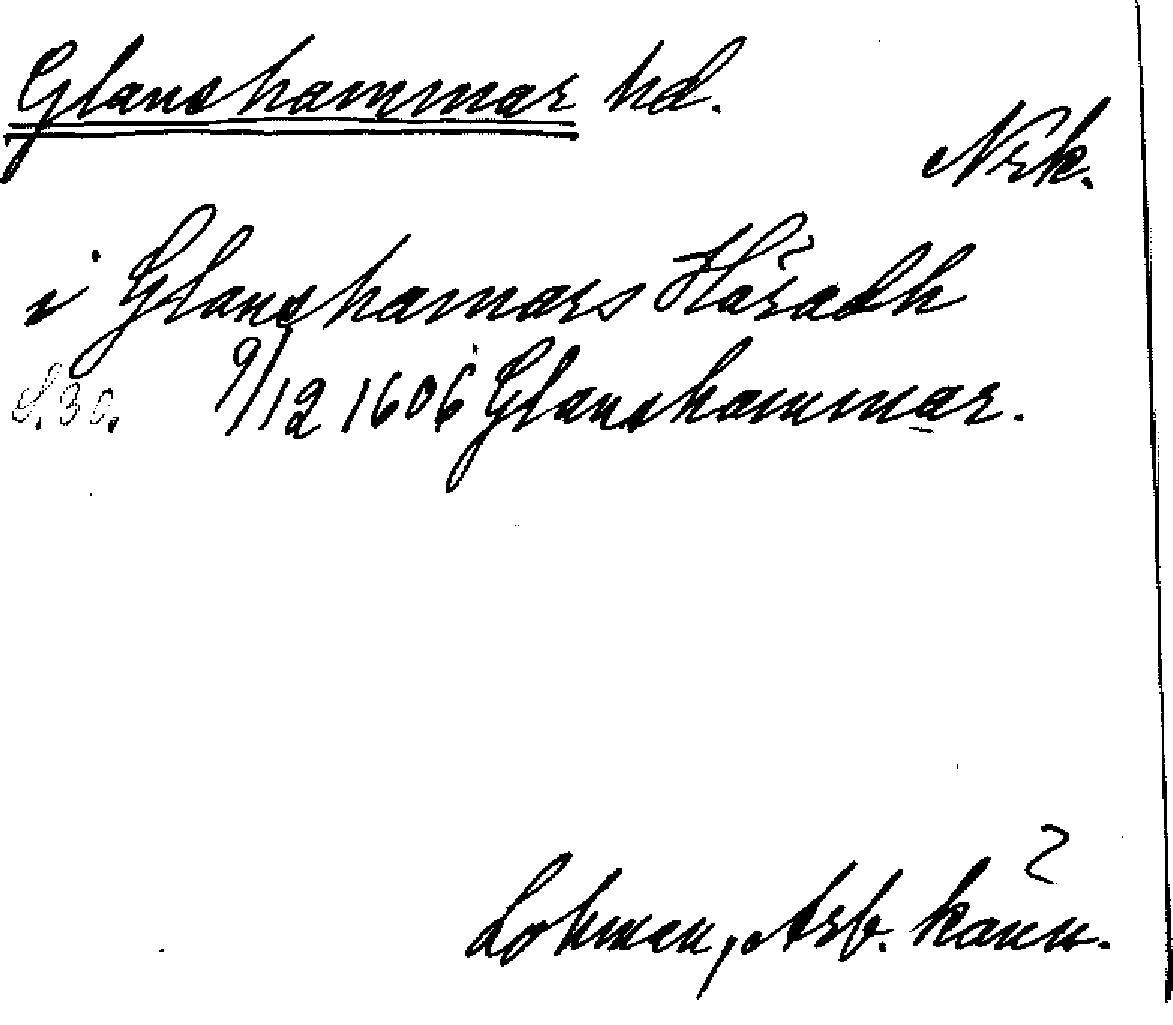 Glanshammar hd.
Nrk.
i Glanshamars Häradh
S.30. 9/12 1606 Glanshammar.
Lohman, Arb. känn.